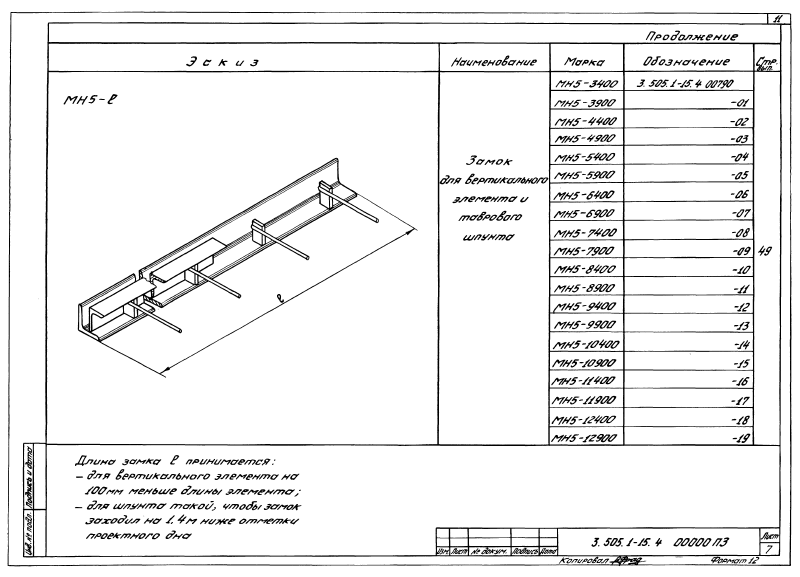 11
Продолжение
Эскиз Наименование Марка Обозначение Стр. вып.
МН5-ℓ
ℓ
Замок
для вертикального
элемента и
таврового
шпунта
МН5-3400 3.505.1-15.4 00790
МН5-3900 -01
МН5-4400 -02
МН5-4900 -03
МН5-5400 -04
МН5-5900 -05
МН5-6400 -06
МН5-6900 -07
МН5-7400 -08
МН5-7900 -09 49
МН5-8400 -10
МН5-8900 -11
МН5-9400 -12
МН5-9900 -13
МН5-10400 -14
МН5-10900 -15
МН5-11400 -16
МН5-11900 -17
МН5-12400 -18
МН5-12900 -19
Длина замка ℓ принимается:
– для вертикального элемента на
100мм меньше длины элемента;
– для шпунта такой, чтобы замок
заходил на 1.4м ниже отметки
проектного дна
Инв.№ подл. Подпись и дата
Изм. Лист № докум. Подпись Дата
3.505.1-15.4 00000 ПЗ
Лист
7
Копировал
Формат 12